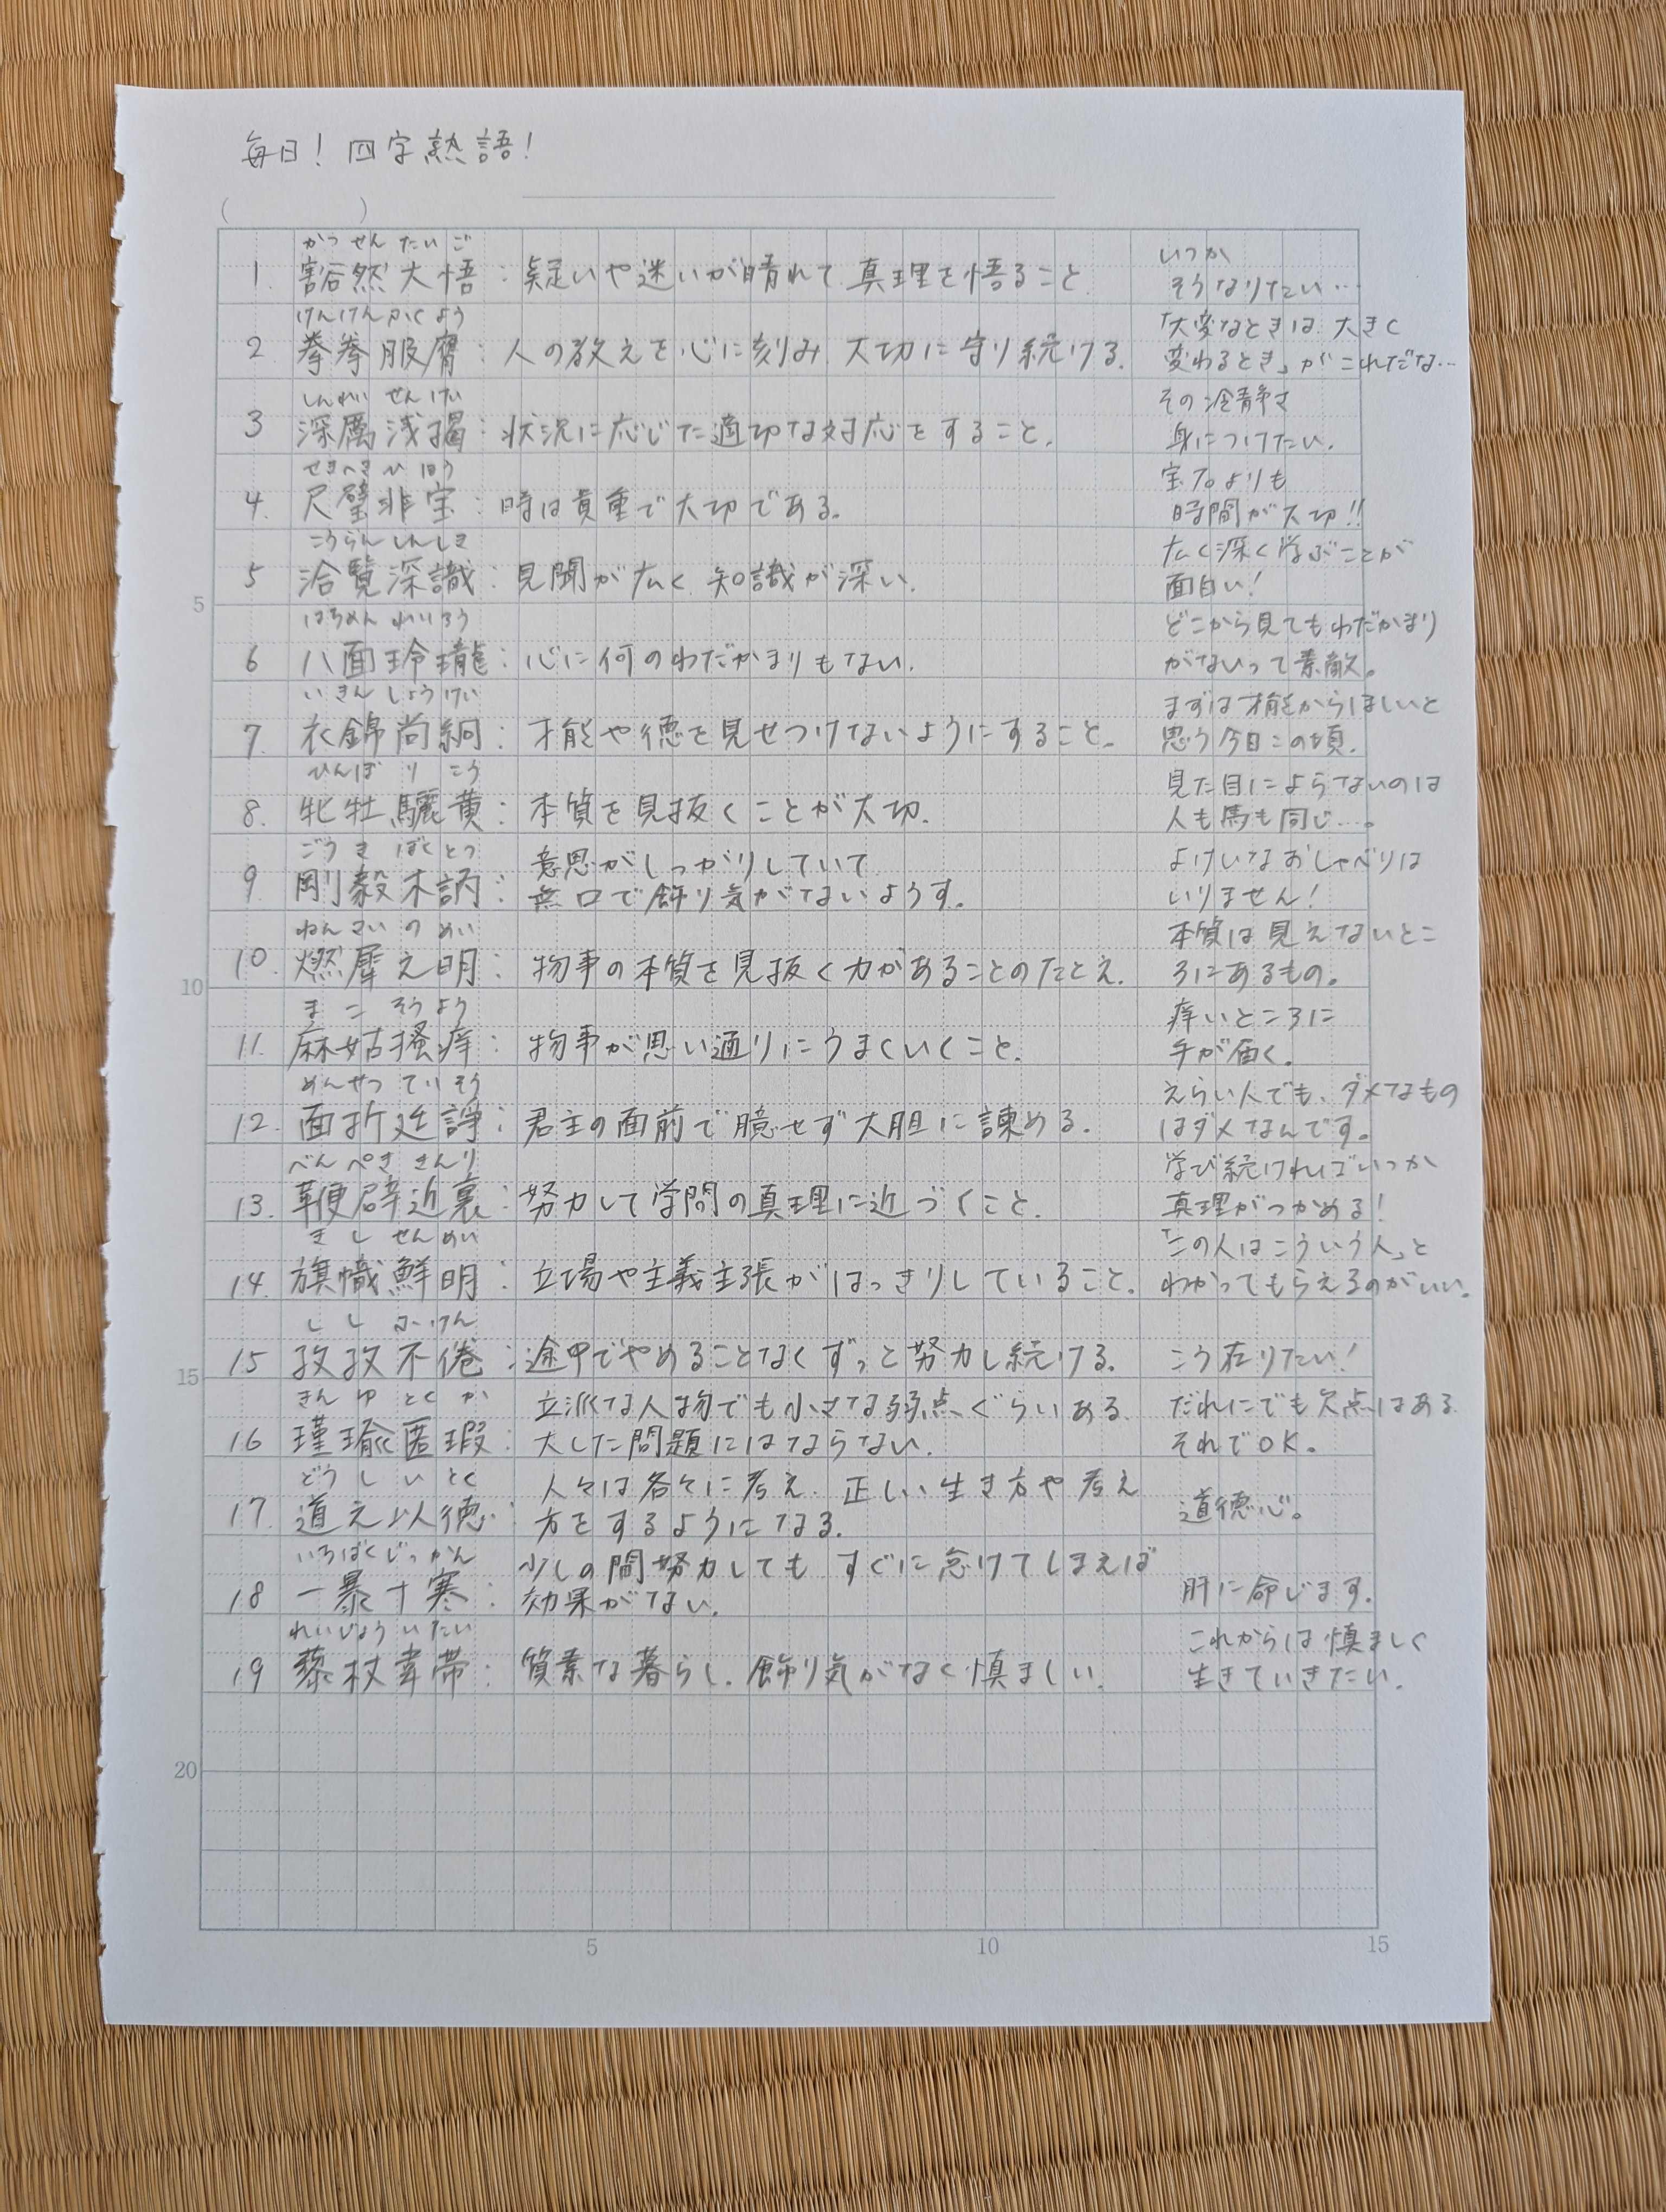 毎日！四字熟語！
( )
かつ せん たい ご
1. 豁然大悟：疑いや迷いが晴れて、真理を悟ること
いつか
そうなりたい…
けんけん かく よう
2 拳拳服膺：人の教えを心に刻み、大切に守り続ける。
「大変なときは、大きく
変わるとき」がこれだな…
しんれい せんけい
3 深厲浅掲：状況に応じた適切な対応をすること。
その冷静さ
身につけたい。
せきへき ひ ほう
4. 尺璧非宝：時は貴重で大切である。
宝石よりも
時間が大切!!
こうらんしんしき
5 洽覧深識：見聞が広く、知識が深い。
広く深く学ぶことが
面白い！
はちめん れいろう
6 八面玲瓏：心に何のわだかまりもない。
どこから見てもわだかまり
がないって素敵。
い きん しょうけい
7. 衣錦尚絅：才能や徳を見せつけないようにすること。
まずは才能からほしいと
思う今日この頃。
ひんぼ り こう
8. 牝牡驪黄：本質を見抜くことが大切。
見た目によらないのは
人も馬も同じ…。
ごう き ぼく とつ
9 剛毅木訥：意思がしっかりしていて
無口で飾り気がないようす。
よけいなおしゃべりは
いりません！
ねん さい の めい
10. 燃犀之明：物事の本質を見抜く力があることのたとえ。
本質は見えないとこ
ろにあるもの。
ま こ そう よう
11. 麻姑掻痒：物事が思い通りにうまくいくこと。
痒いところに
手が届く。
めんせつ てい そう
12. 面折廷諍：君主の面前で臆せず大胆に諫める。
えらい人でも、ダメなもの
はダメなんです。
べん ぺき きんり
13. 鞭辟近裏：努力して学問の真理に近づくこと。
学び続ければいつか
真理がつかめる！
き し せんめい
14. 旗幟鮮明：立場や主義主張がはっきりしていること。
「この人はこういう人」と
わかってもらえるのがいい。
し し ふ けん
15 孜孜不倦：途中でやめることなくずっと努力し続ける。
こう在りたい！
きん ゆ とく か
16 瑾瑜匿瑕：立派な人物でも小さな弱点ぐらいある
大した問題にはならない。
だれにでも欠点はある
それでOK。
どう し い とく
17. 道之以徳：人々は各々に考え、正しい生き方や考え
方をするようになる。
道徳心。
いちばくじっかん
18 一暴十寒：少しの間努力しても、すぐに怠けてしまえば
効果がない。
肝に命じます。
れいじょう い たい
19 藜杖韋帯：質素な暮らし。飾り気がなく慎ましい。
これからは慎ましく
生きていきたい。
5
10
15
20
5 10 15